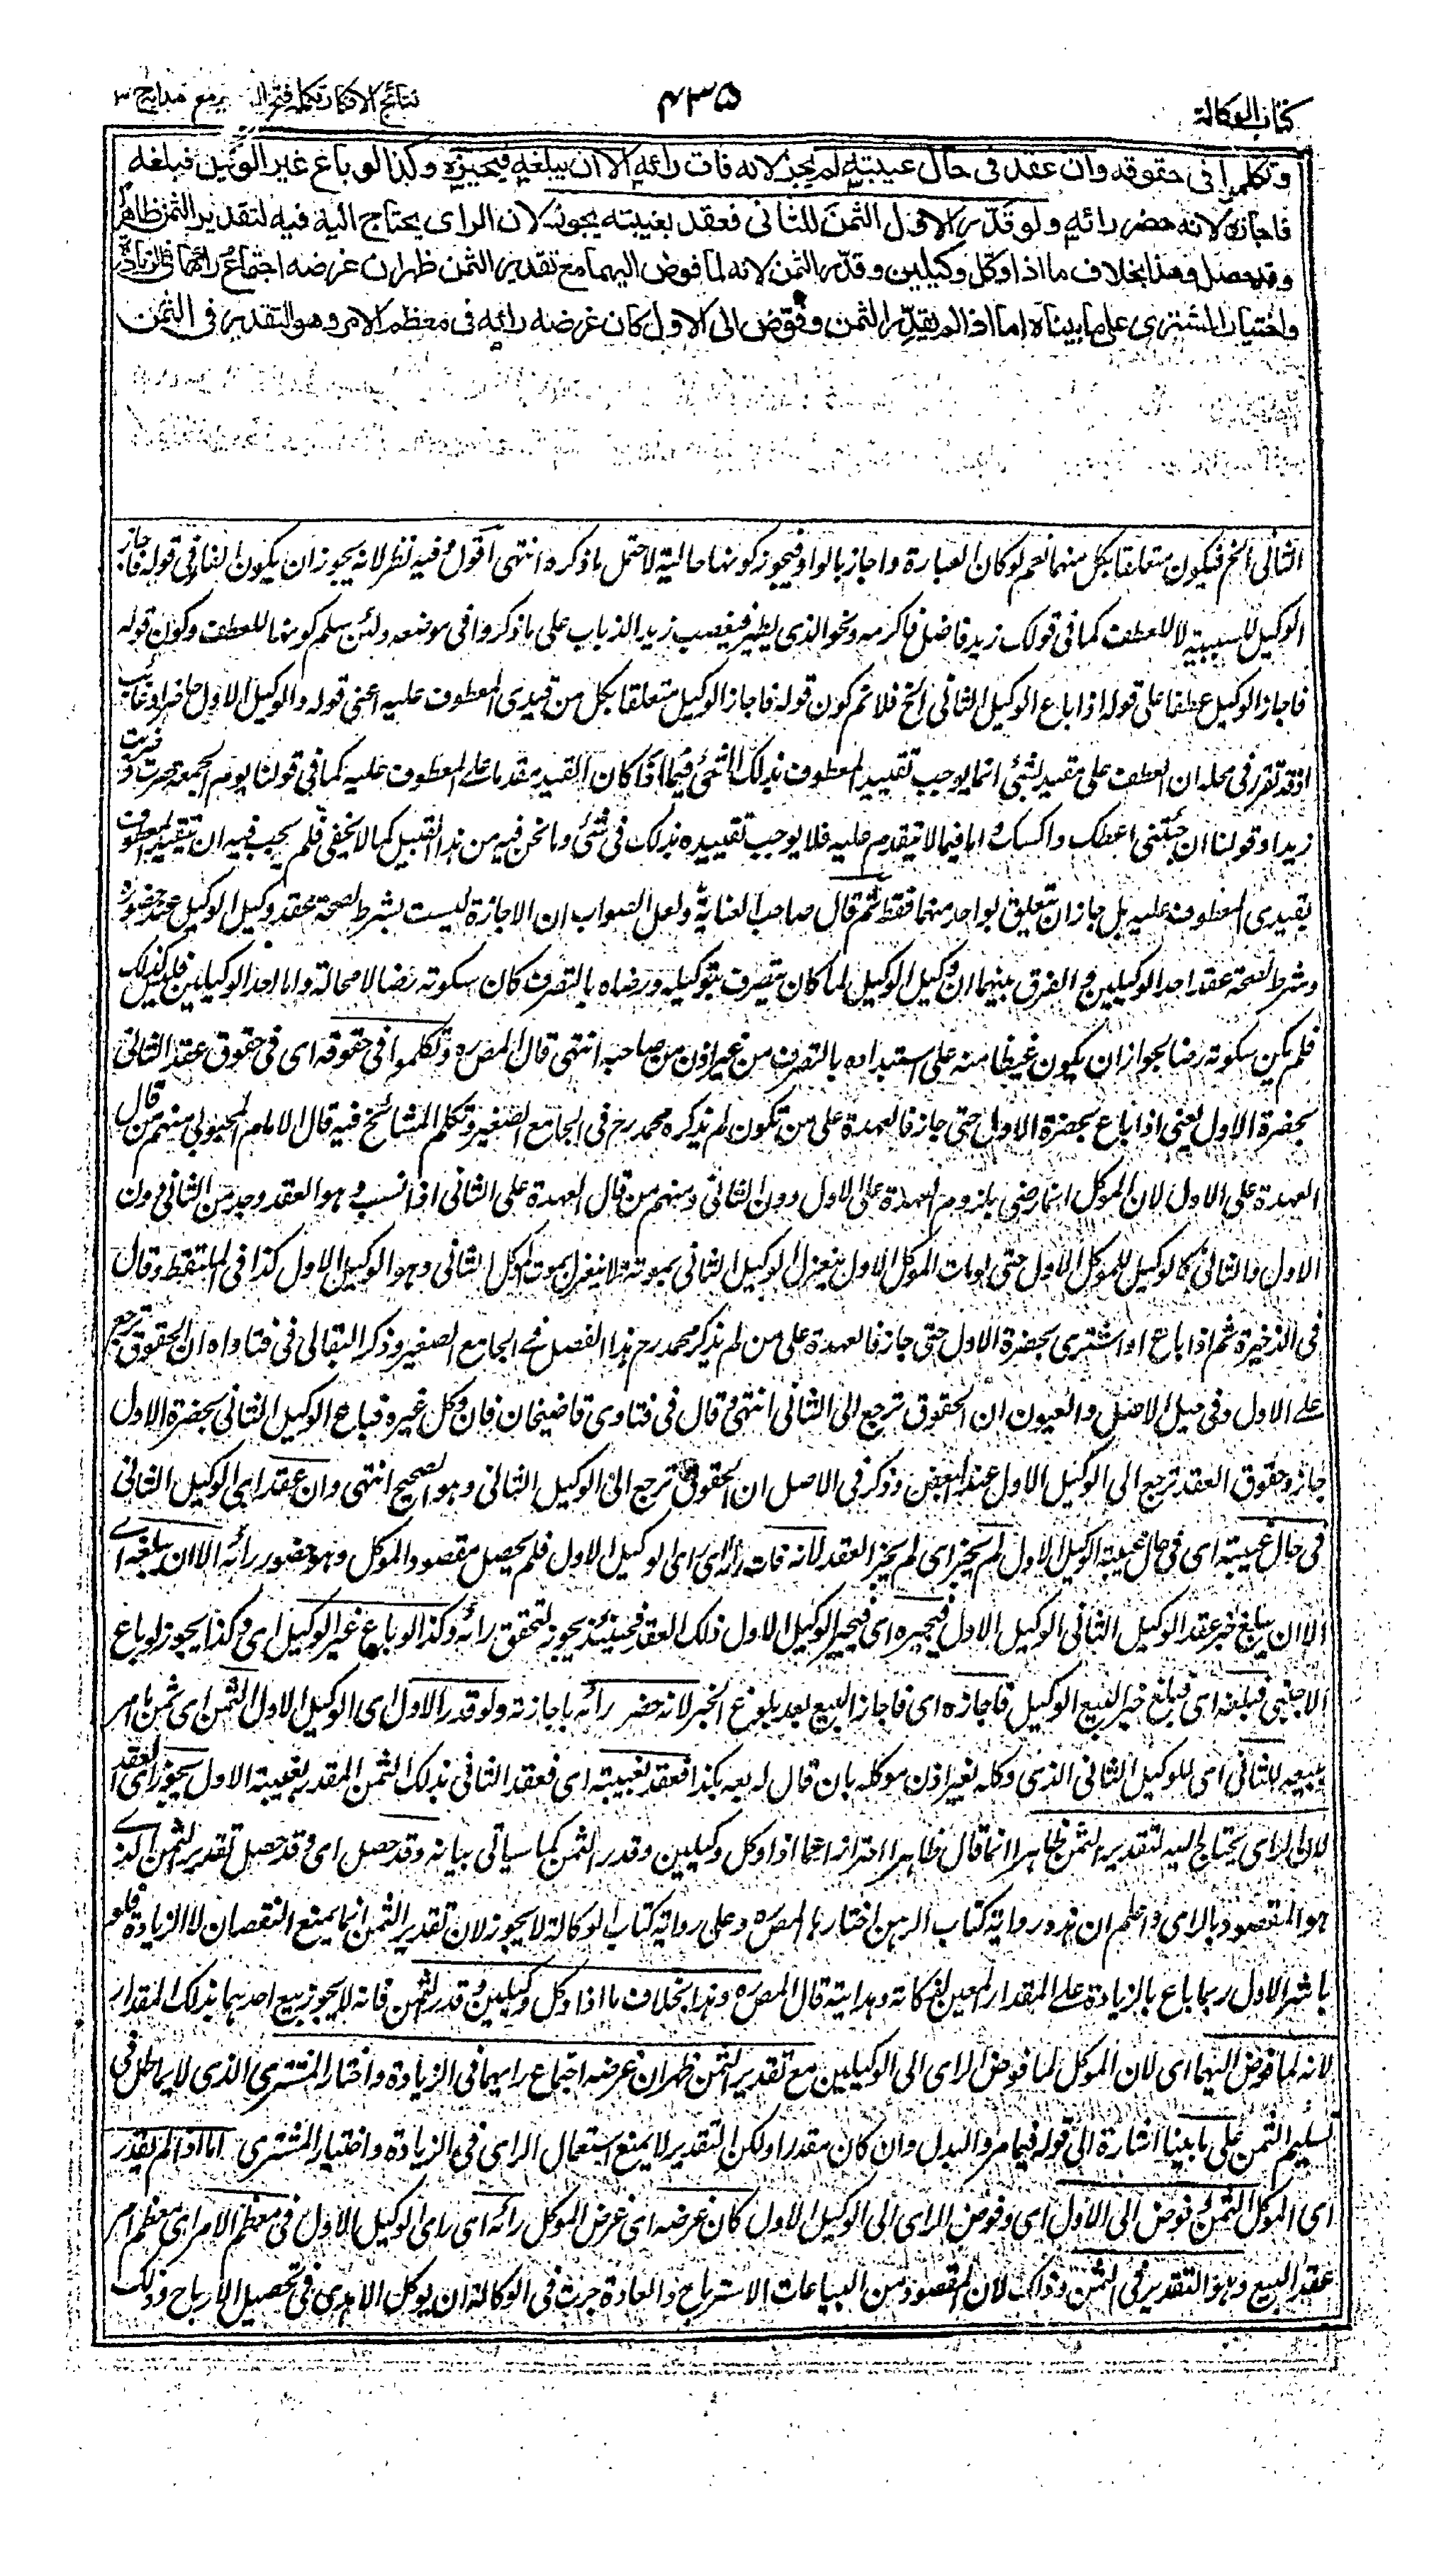 كتاب الوكالة
٤٣٥
نتائج الافكار تكملة فتح القدير مع هداية ج ٣
وتكلموا فى حقوقه وان عقد فى حال غيبته لم يجز لانه فات رائه الا ان يبلغه فيجيزه وكذا لو باع غير الوكيل فبلغه
فاجازه لانه حضر رائه ولو قدّر الاول الثمن للثانى فعقد بغيبته يجوز لان الراى يحتاج اليه فيه لتقدير الثمن ظاهرا
وقد حصل وهذا بخلاف ما اذا وكّل وكيلين وقدّر الثمن لانه لما فوض اليهما مع تقدير الثمن ظهر ان غرضه اجتماع رائهما فى الزيادة
واختيار المشترى على ما بيناه اما اذا لم يقدّر الثمن وفوّض الى الاول كان غرضه رائه فى معظم الامر وهو التقدير فى الثمن
الثانى الخ فيكون متعلقا بكل منهما نعم لو كان العبارة واجاز بالواو فيجوز كونها حالية لاحتمل ما ذكره انتهى اقول وفيه نظر لانه يجوز ان يكون الفاء فى قوله فاجاز
الوكيل للسببية لا للعطف كما فى قولك زيد فاضل فاكرمه ونحو الذى يطير فيغضب زيد الذباب على ما ذكروا فى موضعه ولئن سلم كونها للعطف وكون قوله
فاجاز الوكيل عطفا على قوله اذا باع الوكيل الثانى الخ فلا نم كون قوله فاجاز الوكيل متعلقا بكل من قيدى المعطوف عليه اعنى قوله والوكيل الاول حاضر او غائب
اذ قد تقرر فى محله ان العطف على مقيد بشئ انما يوجب تقييد المعطوف بذلك الشئ فيما اذا كان القيد مقدما على المعطوف عليه كما فى قولنا يوم الجمعة سرت وضربت
زيدا وقولنا ان جئتنى اعطك واكسك واما فيما لا يتقدم عليه فلا يوجب تقييده بذلك فى شئ وما نحن فيه من هذا القبيل كما لا يخفى فلم يجب فيه ان يتقيد المعطوف
بقيدى المعطوف عليه بل جاز ان يتعلق بواحد منهما فقط ثم قال صاحب العناية ولعل الصواب ان الاجازة ليست بشرط لصحة عقد وكيل الوكيل عند حضوره
وشرط لصحة عقد احد الوكيلين والفرق بينهما ان وكيل الوكيل لما كان يتصرف بتوكيله ورضاه بالتصرف كان سكوته رضا لا محالة واما احد الوكيلين فليس كذلك
فلم يكن سكوته رضا لجواز ان يكون غيظا منه على استبداده بالتصرف من غير اذن من صاحبه انتهى قال المص ره وتكلموا فى حقوقه اى فى حقوق عقد الثانى
بحضرة الاول يعنى اذا باع بحضرة الاول حتى جاز فالعهدة على من تكون لم يذكره محمد رح فى الجامع الصغير وتكلم المشائخ فيه قال الامام المحبوبى منهم من قال
العهدة على الاول لان الموكل انما رضى بلزوم العهدة على الاول دون الثانى ومنهم من قال العهدة على الثانى اذ السبب وهو العقد وجد من الثانى دون
الاول والثانى كالوكيل للموكل الاول حتى لو مات الموكل الاول ينعزل الوكيل الثانى بموته ولا ينعزل بموت الموكل الثانى وهو الوكيل الاول كذا فى الملتقط وقال
فى الذخيرة ثم اذا باع او اشترى بحضرة الاول حتى جاز فالعهدة على من لم يذكر محمد رح هذا الفصل فى الجامع الصغير وذكر البقالى فى فتاواه ان الحقوق ترجع
على الاول وفى حيل الاصل والعيون ان الحقوق ترجع الى الثانى انتهى وقال فى فتاوى قاضيخان فان وكل غيره فباع الوكيل الثانى بحضرة الاول
جاز وحقوق العقد ترجع الى الوكيل الاول عند البعض وذكر فى الاصل ان الحقوق ترجع الى الوكيل الثانى وهو الصحيح انتهى وان عقد اى الوكيل الثانى
فى حال غيبته اى فى حال غيبة الوكيل الاول لم يجز اى لم يجز العقد لانه فات رائه اى راى الوكيل الاول فلم يحصل مقصود الموكل وهو حضور رائه الا ان يبلغه اى
الا ان يبلغ خبر عقد الوكيل الثانى الوكيل الاول فيجيزه اى فيجيز الوكيل الاول ذلك العقد فحينئذ يجوز لتحقق رائه وكذا لو باع غير الوكيل اى وكذا يجوز لو باع
الاجنبى فبلغه اى فبلغ خبر البيع الوكيل فاجازه اى فاجاز البيع بعد بلوغ الخبر لانه حضر رائه باجازته ولو قدر الاول اى الوكيل الاول الثمن اى ثمن ما امر
ببيعه للثانى اى للوكيل الثانى الذى وكله بغير اذن موكله بان قال له بعه بكذا فعقد بغيبته اى فعقد الثانى بذلك الثمن المقدر بغيبة الاول يجوز اى العقد
لان الراى يحتاج اليه لتقدير الثمن ظاهرا انما قال ظاهرا احترازا عما اذا وكل وكيلين وقدر الثمن كما سياتى بيانه وقد حصل اى وقد حصل تقدير الثمن الذى
هو المقصود بالراى واعلم ان هذه رواية كتاب الرهن اختارها المص ره وعلى رواية كتاب الوكالة لا يجوز لان تقدير الثمن انما يمنع النقصان لا الزيادة فلو
باشر الاول ربما باع بالزيادة على المقدار المعين لذكائه وهدايته قال المص ره وهذا بخلاف ما اذا وكل وكيلين وقدر الثمن فانه لا يجوز بيع احدهما بذلك المقدار
لانه لما فوض اليهما اى لان الموكل لما فوض الراى الى الوكيلين مع تقدير الثمن ظهر ان غرضه اجتماع رايهما فى الزيادة واختيار المشترى الذى لا يماطل فى
تسليم الثمن على ما بينا اشارة الى قوله فيما مر والبدل وان كان مقدرا ولكن التقدير لا يمنع استعمال الراى فى الزيادة واختيار المشترى اما اذا لم يقدر
اى الموكل الثمن وفوض الى الاول اى وفوض الراى الى الوكيل الاول كان غرضه اى غرض الموكل رائه اى راى الوكيل الاول فى معظم الامر اى معظم امر
عقد البيع وهو التقدير فى الثمن وذلك لان المقصود من البياعات الاسترباح والعادة جرت فى الوكالة ان يوكل الاهدى فى تحصيل الارباح وذلك